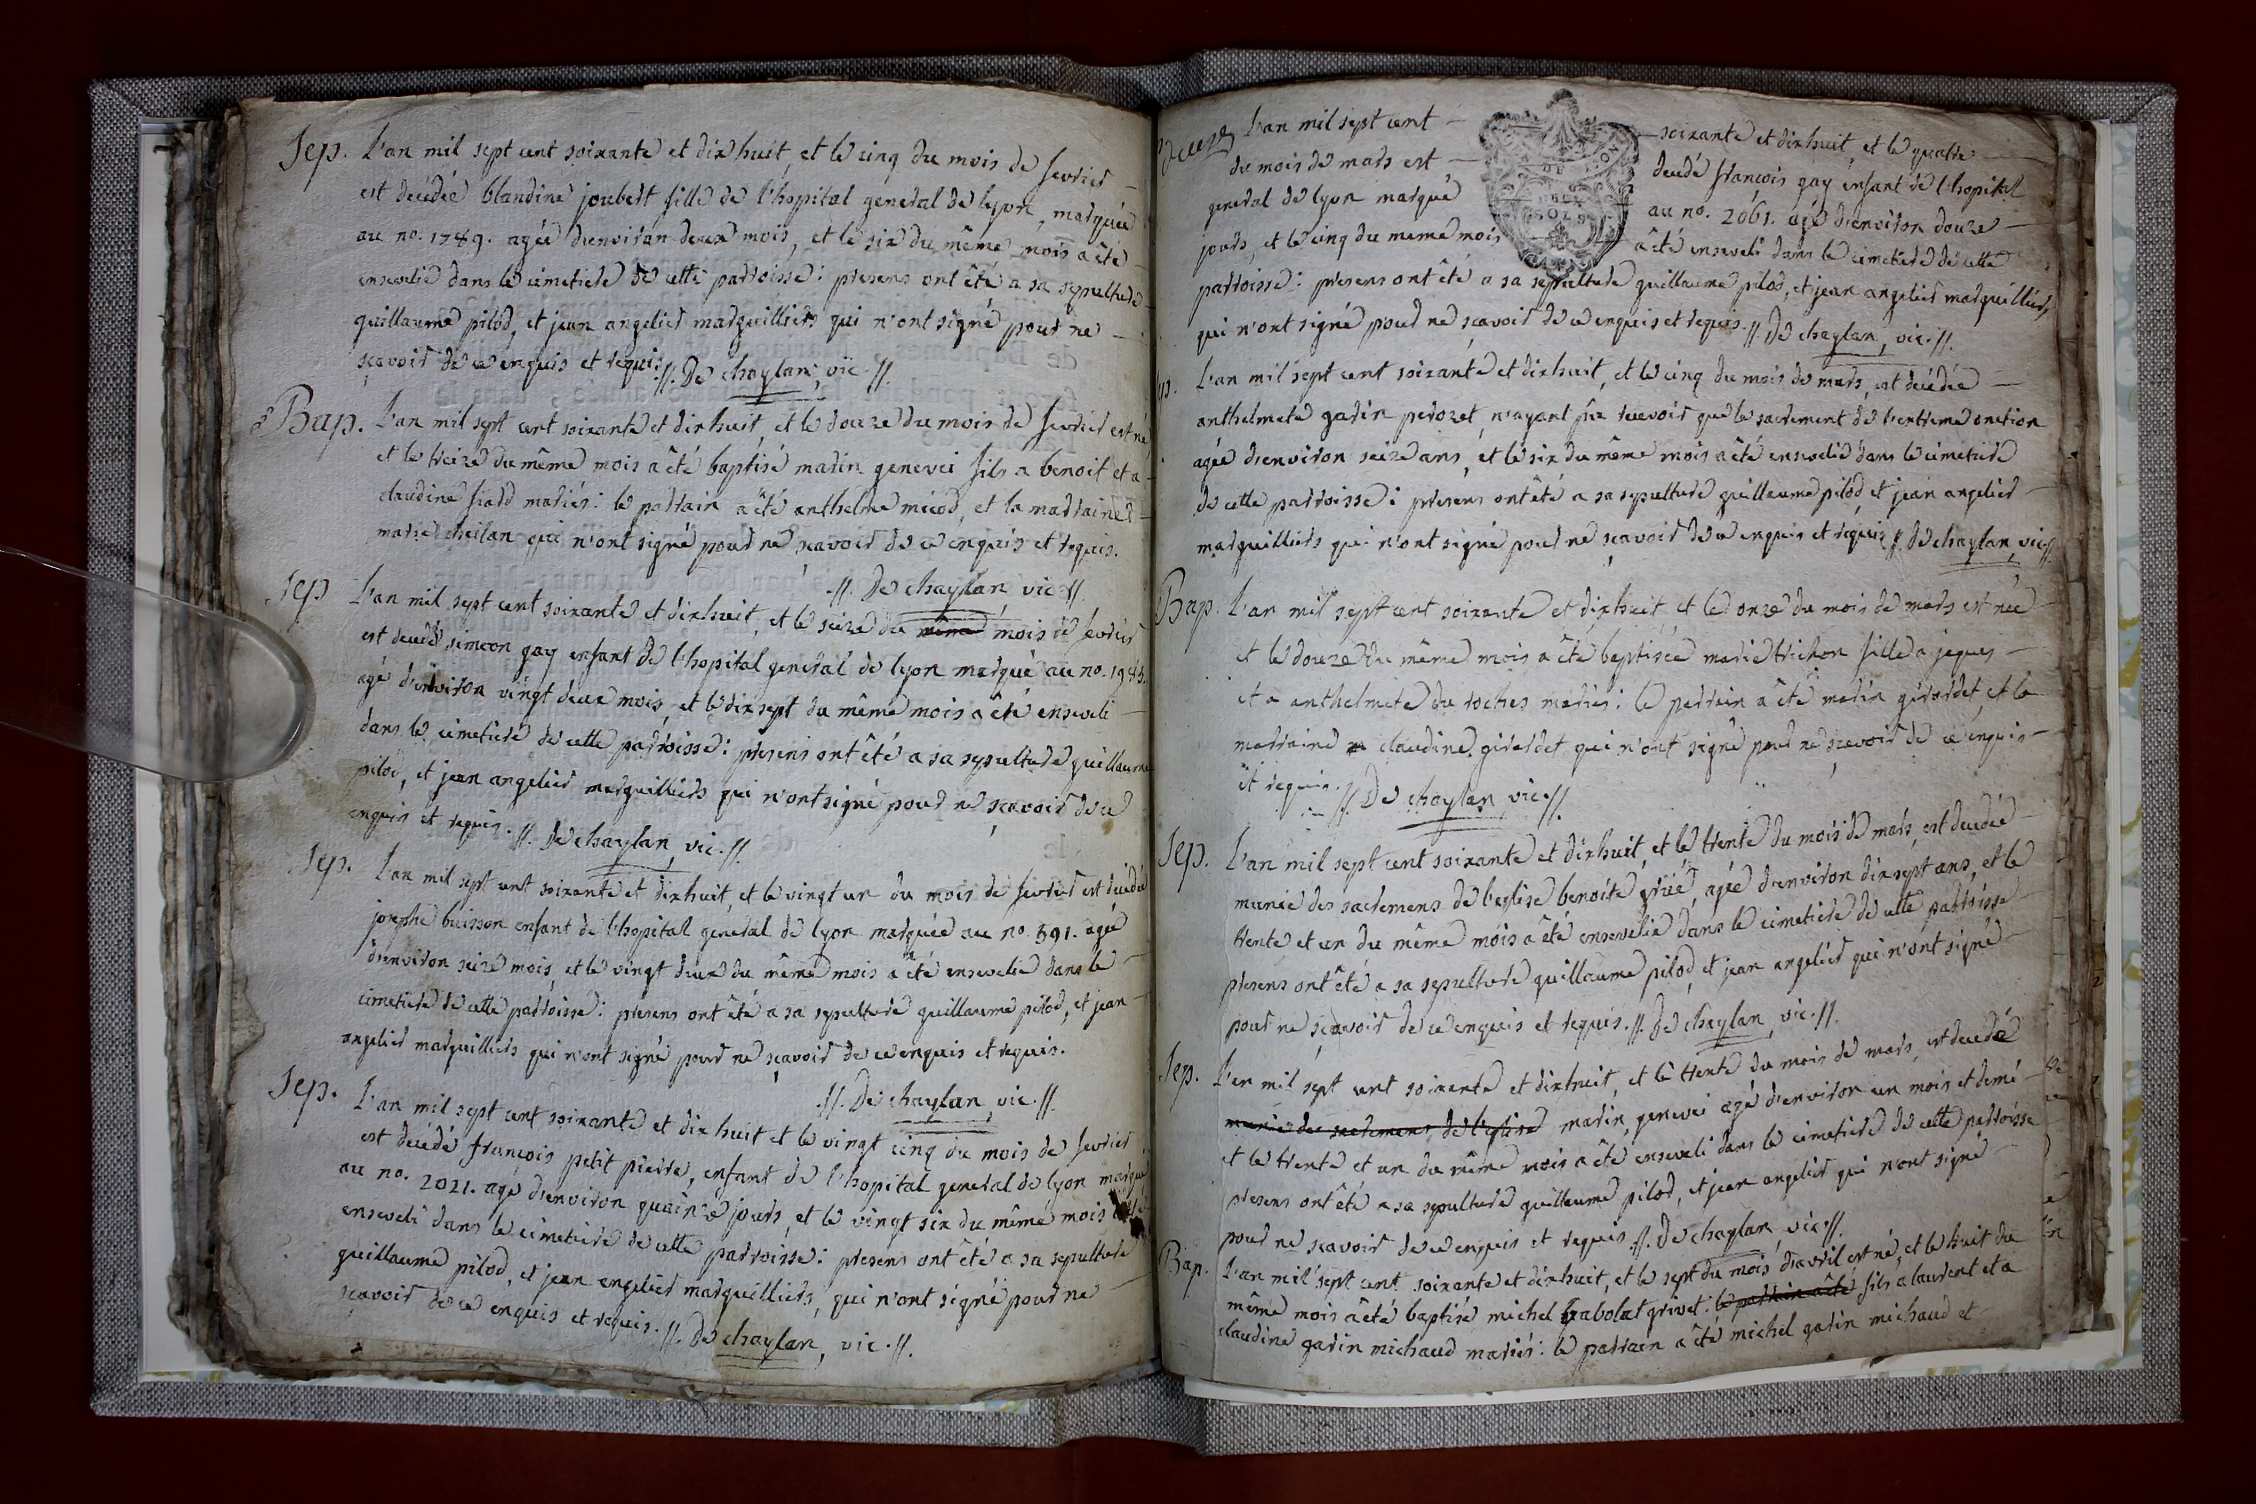 Sep. L'an mil sept cent soixante et dixhuit, et le cinq du mois de fevrier
est decédée blandine joubert fille de l'hopital general de lyon, marquée
au no. 1789. agée d'environ deux mois, et le six du même mois a êté
ensevelie dans le cimetiere de cette parroisse: presens ont êté a sa sepulture
guillaume pilod, et jean angelier marguilliers qui n'ont signé pour ne
sçavoir de ce enquis et requis. //. De chaylan, vic. //.
Bap. L'an mil sept cent soixante et dixhuit, et le douze du mois de fevrier est né
et le treize du même mois a êté baptisé marin genevei fils a benoit et a
claudine siard mariés: le parrain a êté anthelme micod, et la marraine
marie cheilan qui n'ont signé pour ne sçavoir de ce enquis et requis.
//. De chaylan vic //.
Sep L'an mil sept cent soixante et dixhuit, et le seize du même mois de fevrier
est decedé simeon gay enfant de l'hopital general de lyon marqué au no. 1985.
agé d'environ vingt deux mois, et le dixsept du même mois a êté enseveli
dans le cimetiere de cette parroisse: presens ont êté a sa sepulture guillaume
pilod, et jean angelier marguilliers qui n'ont signé pour ne sçavoir de ce
enquis et requis. //. De chaylan, vic. //.
Sep. L'an mil sept cent soixante et dixhuit, et le vingt un du mois de fevrier est decédée
josephe buisson enfant de l'hopital general de lyon marquée au no. 591. agée
d'environ seize mois, et le vingt deux du même mois a êté ensevelie dans le
cimetiere de cette parroisse: presens ont êté a sa sepulture guillaume pilod, et jean
angelier marguilliers qui n'ont signé pour ne sçavoir de ce enquis et requis.
//. De chaylan, vic. //.
Sep. L'an mil sept cent soixante et dixhuit et le vingt cinq du mois de fevrier
est decédé françois petit pierre, enfant de l'hopital general de lyon marqué
au no. 2021. agé d'environ quainze jours, et le vingt six du même mois a êté
enseveli dans le cimetiere de cette parroisse: presens ont êté a sa sepulture
guillaume pilod, et jean angelier marguilliers, qui n'ont signé pour ne
sçavoir de ce enquis et requis. //. De chaylan, vic. //.
L'an mil sept cent soixante et dixhuit, et le quatre
du mois de mars est decedé françois gay enfant de l'hopital
general de lyon marqué au no. 2061. agé d'environ douze
jours, et le cinq du meme mois a êté enseveli dans le cimetiere de cette
parroisse: presens ont êté a sa sepulture guillaume pilod, et jean angelier marguilliers,
qui n'ont signé pour ne scavoir de ce enquis et requis. //. De chaylan, vic. //.
L'an mil sept cent soixante et dixhuit, et le cinq du mois de mars, est decédée
anthelmete garin perozet, n'ayant pu recevoir que le sacrement de l'extreme onction
agée d'environ seize ans, et le six du même mois a êté ensevelie dans le cimetiere
de cette parroisse: presens ont êté a sa sepulture guillaume pilod et jean angelier
marguilliers qui n'ont signé pour ne sçavoir de ce enquis et requis //. De chaylan, vic //.
Bap. L'an mil sept cent soixante et dixhuit, et le onze du mois de mars est née
et le douze du même mois a êté baptisée marie trichon fille a jaques
et a anthelmete du roches mariés: le parrain a êté marin girardet, et la
marraine claudine girardet qui n'ont signé pour ne sçavoir de ce enquis
et requis. //. De chaylan, vic. //.
Sep. L'an mil sept cent soixante et dixhuit, et le trente du mois de mars, est decedée
munie des sacremens de l'eglise benoite grué, agée d'environ dixsept ans, et le
trente et un du même mois a êté ensevelie dans le cimetiere de cette parroisse
presens ont êté a sa sepulture guillaume pilod, et jean angelier qui n'ont signé
pour ne sçavoir de ce enquis et requis. //. De chaylan, vic. //.
Sep. L'an mil sept cent soixante et dixhuit, et le trente du mois de mars, est decedé
munie des sacremens de l'eglise marin, genevei agé d'environ un mois et demi
et le trente et un du même mois a êté enseveli dans le cimetiere de cette parroisse
presens ont êté a sa sepulture guillaume pilod, et jean angelier qui n'ont signé
pour ne scavoir de ce enquis et requis. //. De chaylan, vic. //.
Bap. L'an mil sept cent soixante et dixhuit, et le sept du mois d'avril est né, et le huit du
même mois a êté baptisé michel rabolat grivet: le parrain a êté fils a laurent et a
claudine garin michaud mariés: le parrain a êté michel garin michaud et